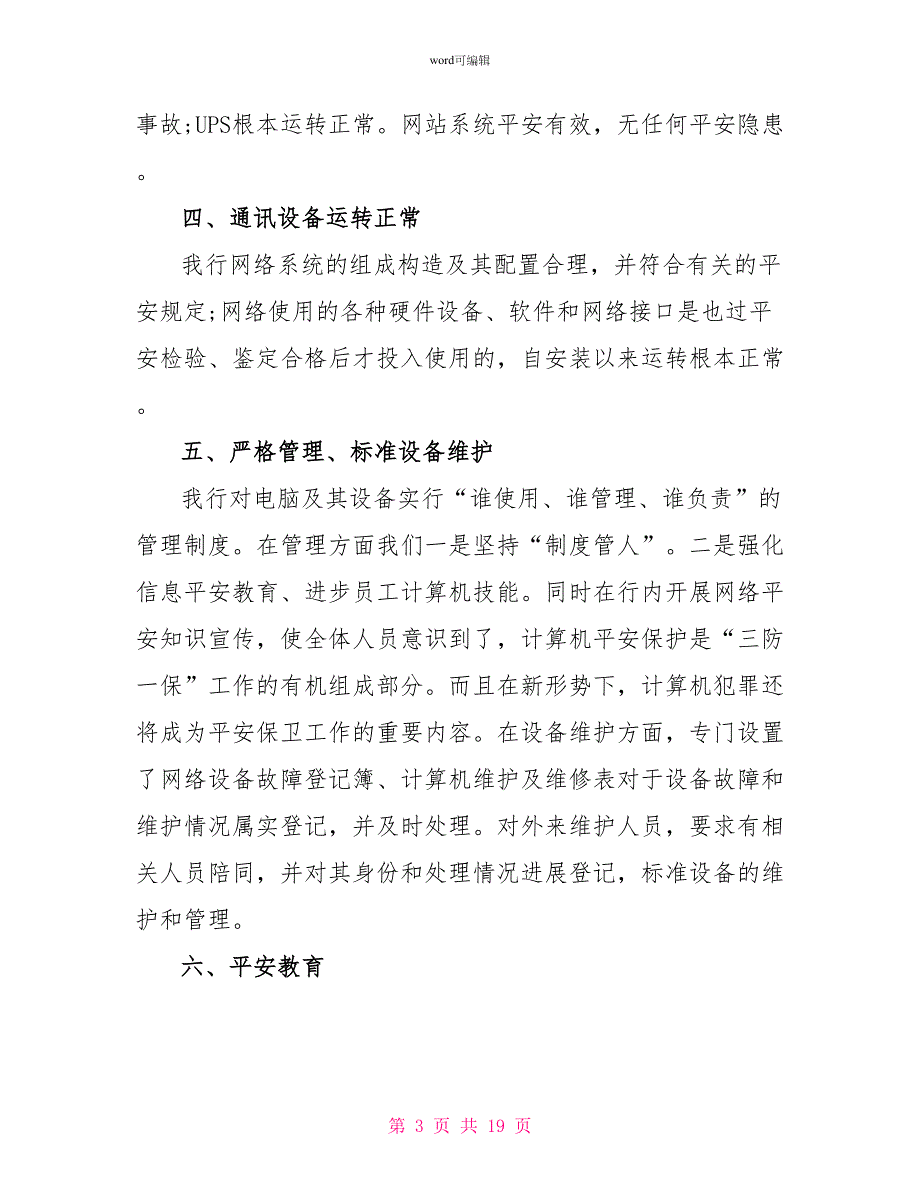 word可编辑
事故;UPS根本运转正常。网站系统平安有效，无任何平安隐患
。
四、通讯设备运转正常
我行网络系统的组成构造及其配置合理，并符合有关的平
安规定;网络使用的各种硬件设备、软件和网络接口是也过平
安检验、鉴定合格后才投入使用的，自安装以来运转根本正常
。
五、严格管理、标准设备维护
我行对电脑及其设备实行“谁使用、谁管理、谁负责”的
管理制度。在管理方面我们一是坚持“制度管人”。二是强化
信息平安教育、进步员工计算机技能。同时在行内开展网络平
安知识宣传，使全体人员意识到了，计算机平安保护是“三防
一保”工作的有机组成部分。而且在新形势下，计算机犯罪还
将成为平安保卫工作的重要内容。在设备维护方面，专门设置
了网络设备故障登记簿、计算机维护及维修表对于设备故障和
维护情况属实登记，并及时处理。对外来维护人员，要求有相
关人员陪同，并对其身份和处理情况进展登记，标准设备的维
护和管理。
六、平安教育
第 3 页 共 19 页